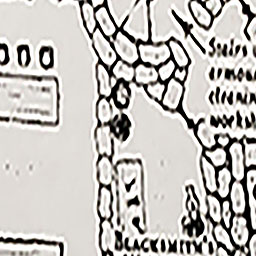 Stairs
armour
cleanin
worksh
BLACKSMITH'S